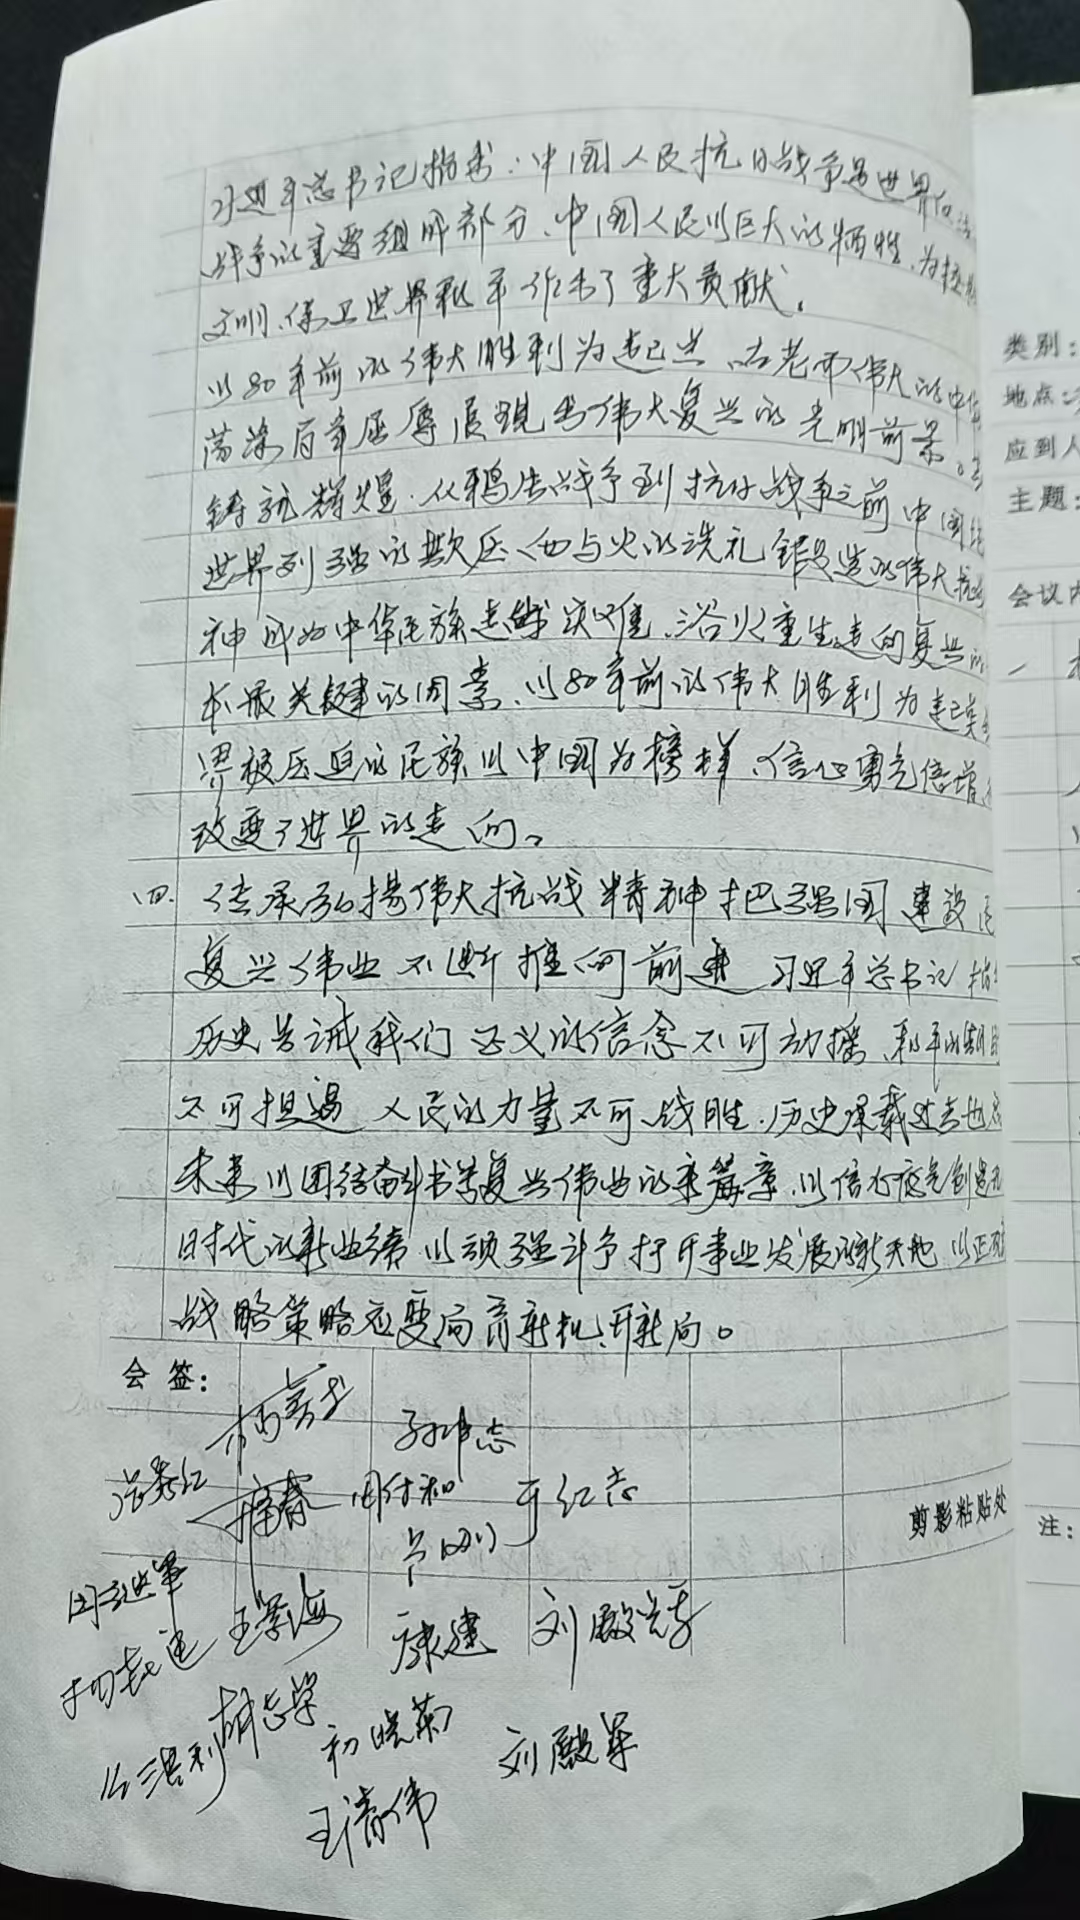 习近平总书记指出：中国人民抗日战争是世界反法
战争的重要组成部分、中国人民以巨大的牺牲，为拯
文明、保卫世界和平作出了重大贡献。
以80年前的伟大胜利为起点、古老而伟大的中华
荡涤百年屈辱展现出伟大复兴的光明前景。
铸就辉煌．从鸦片战争到抗日战争之前中国
世界列强的欺压、血与火的洗礼锻造的伟大抗
神成为中华民族走出艰难、浴火重生走向复兴的
本最关键的因素、以80年前的伟大胜利为起点
界被压迫的民族以中国为榜样、信心勇气倍增、
改变了世界的走向。
四．传承弘扬伟大抗战精神把强国建设民
复兴伟业不断推向前进 习近平总书记指
历史告诫我们 正义的信念不可动摇、和平的期
不可阻遏 人民的力量不可战胜．历史承载过去也
未来以团结奋斗书写复兴伟业的新篇章、以信心底气创造
时代的新业绩 以顽强斗争打开事业发展的新天地 以正确
战略策略应变局育新机、开新局。
会签：
孙伟志
周付和 于红志
王学海 康建
胡志学 初晓菊 刘殿军
王清伟
剪影粘贴处
类别：
地点：
应到人
主题：
会议内
注：